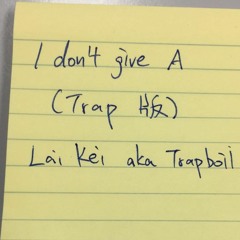 I don't give A
(Trap 版)
Lai Kei aka Trapboii